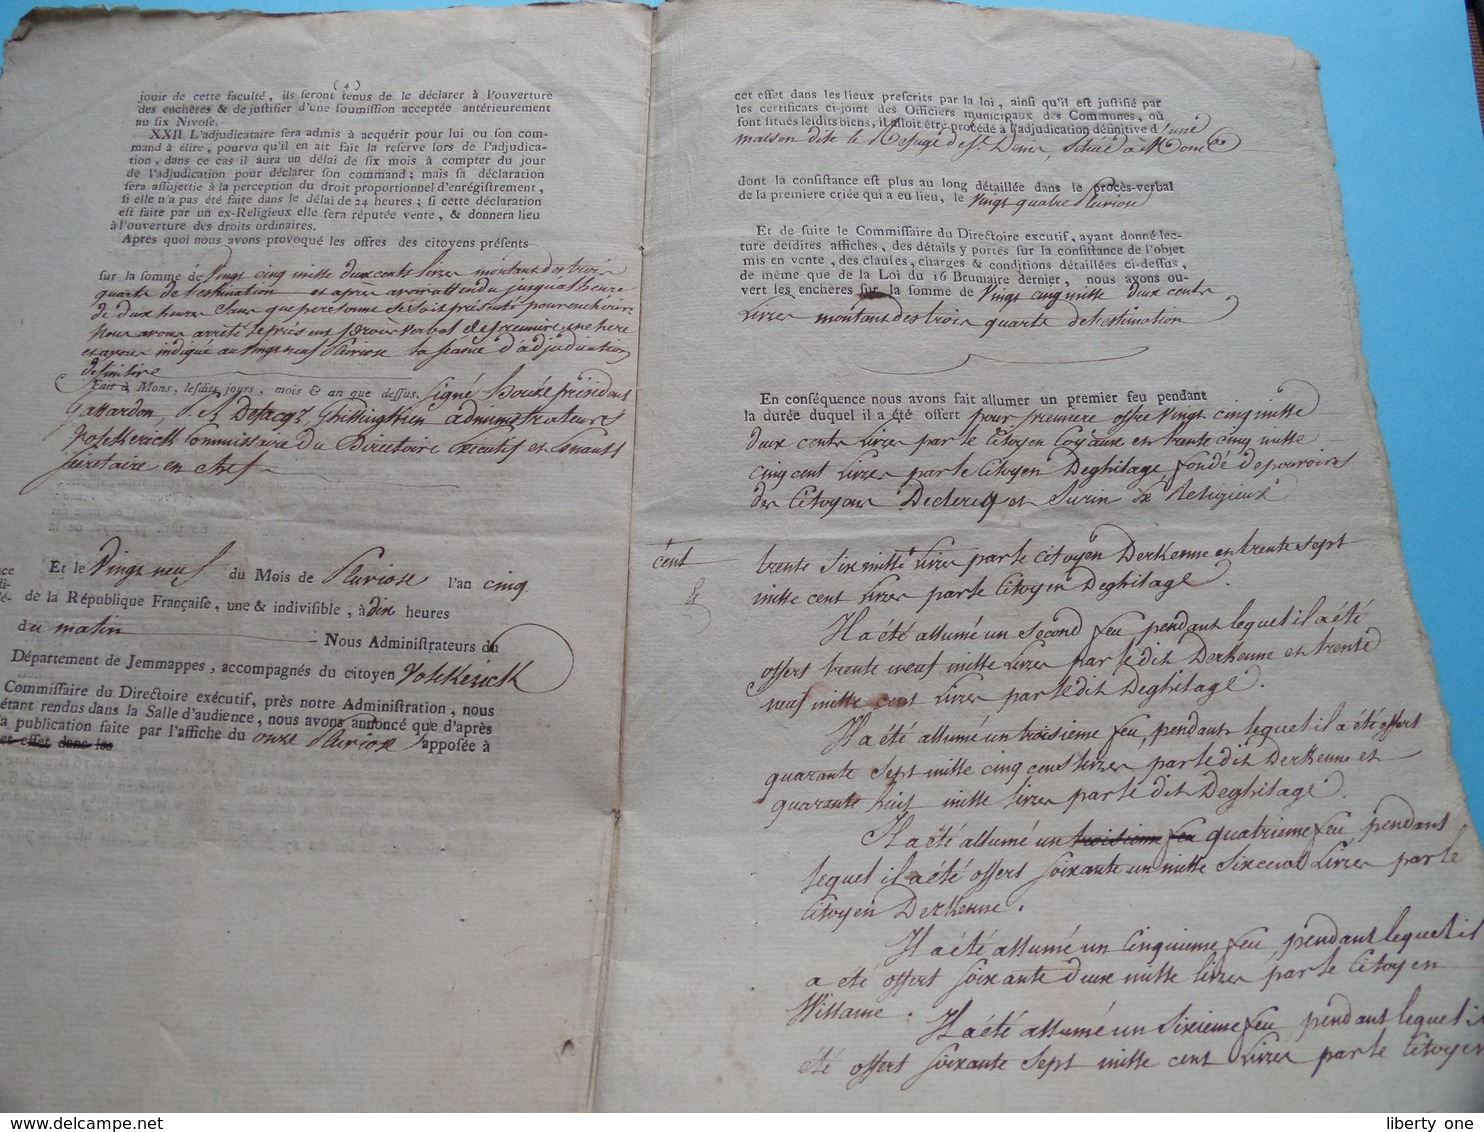 ( 4 )
jouir de cette faculté, ils seront tenus de le déclarer à l'ouverture
des enchères & de justifier d'une soumission acceptée antérieurement
au six Nivose.
XXII. L'adjudicataire sera admis à acquérir pour lui ou son com-
mand à élire, pourvu qu'il en ait fait la reserve lors de l'adjudica-
tion, dans ce cas il aura un délai de six mois à compter du jour
de l'adjudication pour déclarer son command; mais sa déclaration
sera assujettie à la perception du droit proportionnel d'enrégistrement,
si elle n'a pas été faite dans le délai de 24 heures; si cette déclaration
est faite par un ex-Religieux elle sera réputée vente, & donnera lieu
à l'ouverture des droits ordinaires.
Après quoi nous avons provoqué les offres des citoyens présents
sur la somme de Vingt cinq mille deux cents livres montant des trois
quarts de l'estimation et après avoir attendu jusqu'à l'heure
de deux heures sans que personne se soit présenté pour enchérir
Nous avons arrêté le présent procès verbal de première enchere
et avons indiqué au vingt neuf Pluviose la séance d'adjudication
définitive
Fait à Mons, lesdits jours, mois & an que dessus. Signé président
Defacqz administrateurs
Commissaire du Directoire executif et
Sécretaire en chef
Et le Vingt neuf du Mois de Pluviose l'an cinq
de la République Française, une & indivisible, à dix heures
du matin Nous Administrateurs du
Département de Jemmappes, accompagnés du citoyen
Commissaire du Directoire exécutif, près notre Administration, nous
étant rendus dans la Salle d'audience, nous avons annoncé que d'après
la publication faite par l'affiche du onze Pluviose apposée à
cet effet dans les
cet effet dans les lieux prescrits par la loi, ainsi qu'il est justifié par
les certificats ci-joint des Officiers municipaux des Communes, où
sont situés lesdits biens, il alloit être procédé à l'adjudication définitive d'une
maison dite le Refuge de St. Denis, située à Mons
dont la consistance est plus au long détaillée dans le procès-verbal
de la premiere criée qui a eu lieu, le vingt quatre Pluviose
Et de suite le Commissaire du Directoire excutif, ayant donné lec-
ture desdites affiches, des détails y portés sur la consistance de l'objet
mis en vente, des clauses, charges & conditions détaillées ci-dessus,
de même que de la Loi du 16 Brumaire dernier, nous avons ou-
vert les enchères sur la somme de Vingt cinq mille deux cents
Livres montant des trois quarts de l'estimation
En conséquence nous avons fait allumer un premier feu pendant
la durée duquel il a été offert pour première offre vingt cinq mille
deux cents Livres par le Citoyen Coyaux et trente cinq mille
cinq cent Livres par le Citoyen Deghilage, fondé de pouvoirs
des Citoyens Declercq et Surin Ex Religieux
cent
&
trente six mille Livres par le citoyen Derkenne et trente sept
mille cent Livres par le Citoyen Deghilage.
Il a été allumé un second feu, pendant lequel il a été
offert trente neuf mille Livres par le dit Derkenne et trente
neuf mille cent Livres par le dit Deghilage.
Il a été allumé un troisieme feu, pendant lequel il a été offert
quarante sept mille cinq cens Livres par le dit Derkenne et
quarante huit mille livres par le dit Deghilage.
Il a été allumé un troisieme feu quatrieme feu, pendant
lequel il a été offert soixante un mille six cent Livres par le
Citoyen Derkenne.
Il a été allumé un Cinquieme feu, pendant lequel il
a été offert soixante deux mille Livres par le Citoyen
Willame.
Il a été allumé un sixieme feu pendant lequel il
été offert soixante sept mille cent Livres par le Citoyen
liberty one